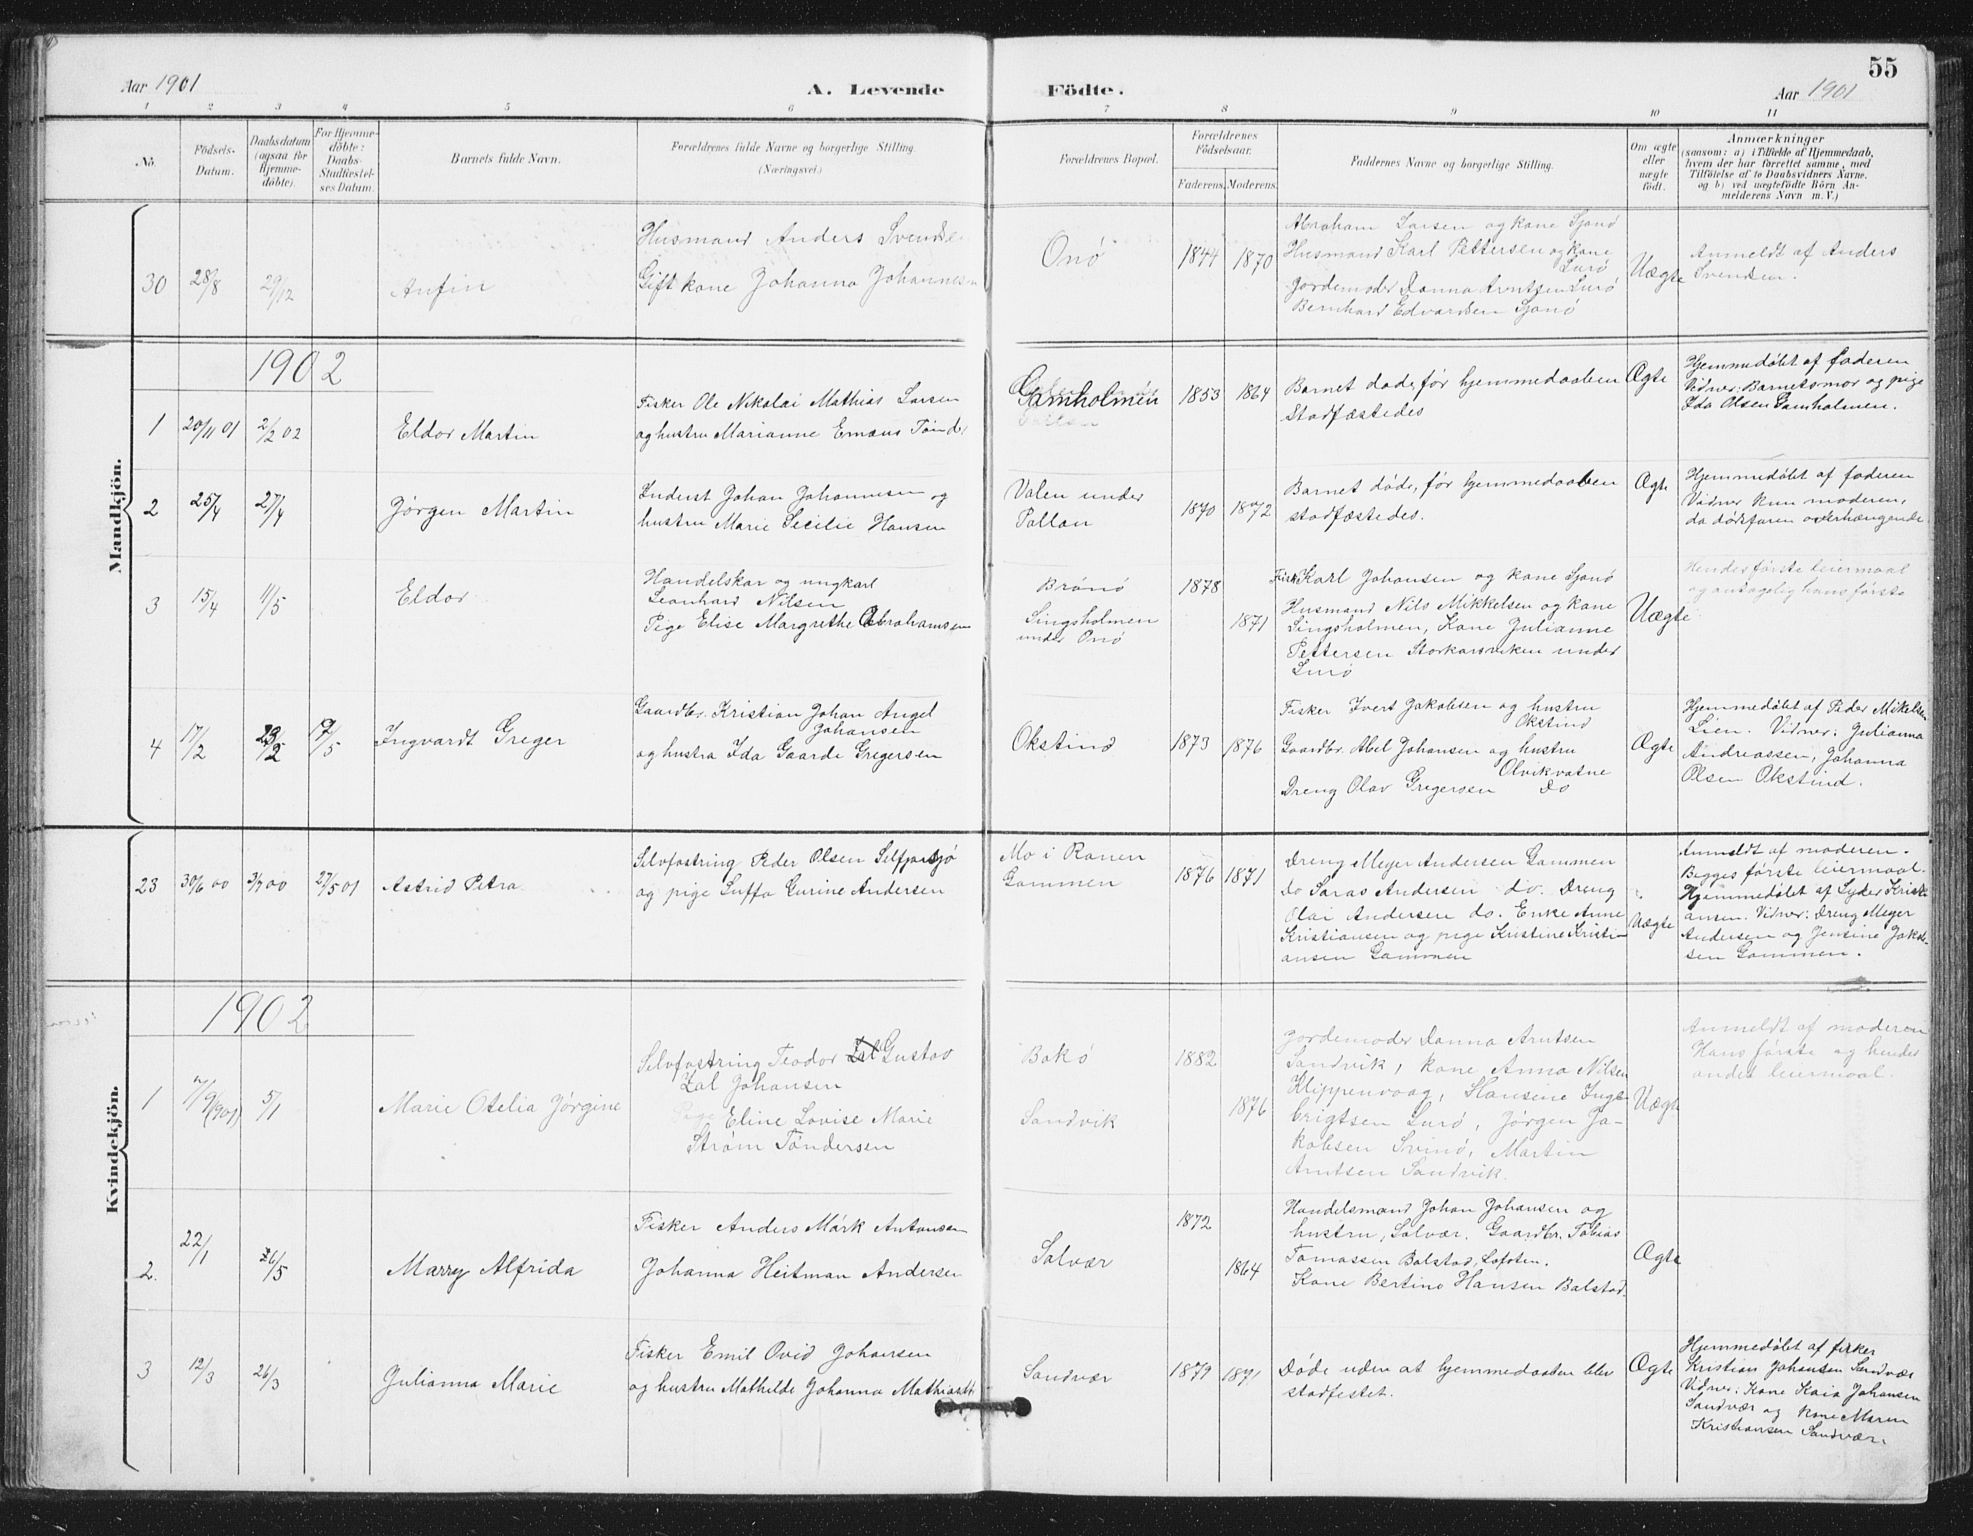 Aar 1901
A. Levende
Födte.
Aar 1901
55
1 2 3 4 5 6 7 8 9 10 11
No.
Födsels-
Datum.
Daabsdatum
(ogsaa for
Hjemme-
döbte).
For Hjemme-
döbte:
Daabs-
Stadfæstel-
ses Datum.
Barnets fulde Navn.
Forældrenes fulde Navne og borgerlige Stilling.
(Næringsvei.)
Forældrenes Bopæl.
Forældrenes
Födselsaar.
Faderens. Moderens.
Faddernes Navne og borgerlige Stilling.
Om ægte
eller
uægte
födt.
Anmærkninger
(saasom: a) i Tilfælde af Hjemmedaab,
hvem der har forrettet samme, med
Tilföielse af to Daabsvidners Navne.
og b) ved uægtefödte Börn An-
melderens Navn m. V.)
Mandkjön.
30 28/8 29/12 Anfin
Husmand Anders Svendse
Gift kone Johanna Johannesen
Onø 1844 1870
Abraham Larsen og kone Sjonø
Husmand Karl Pettersen og kone
Lurø
Jordemoder Danna Arntsen Lurø
Bernhard Edvardsen Sjonø
Uægte
Anmeldt af Anders
Svendsen.
1902
1 20/11 01 2/2 02 Eldor Martin
Fisker Ole Nikolai Mathias Larsen
og hustru Marianne Emæus Tønder
Gamholmen
1853 1864
Barnet døde, før hjemmedaaben
stadfæstedes
Ægte
Hjemmedøbt af faderen
Vidner: Barnets mor og pige
Ida Olsen Gamholmen.
2 25/4 27/4 Jørgen Martin
Inderst Johan Johannesen og
hustru Marie Secilie Hansen
Valen under
Pallan
1870 1872
Barnet døde, før hjemmedaaben
stadfæstedes.
Ægte
Hjemmedøbt af faderen
Vidner kun moderen,
da dødsfaren overhængende
3 15/4 11/5 Eldor
Handelskar og ungkarl
Leonhard Nilsen
Pige Elise Margrethe Abrahamsen
Brønø
Singsholmen
under Onø
1878
1871
Fisk. Karl Johansen og kone Sjonø
Husmand Nils Mikkelsen og kone
Singsholmen, Kone Julianne
Pettersen Storkarsviken under
Lurø
Uægte
Hendes første leiermaal
og antagelig hans første
4 17/2 23/2 19/5 Ingvardt Greger
Gaardbr. Kristian Johan Angel
Johansen
og hustra Ida Gaarde Gregersen
Okstind 1873 1876
Fisker Ivert Jakobsen og hustru
Okstind
Gaardbr. Abel Johansen og hustru
Olvikvatne
Dreng Olav Gregersen Do
Ægte
Hjemmedøbt af Peder Mikelsen
Lien. Vidner: Julianna
Andreassen, Johanna
Olsen Okstind.
23 30/6 00 3/7 00 27/5 01 Astrid Petra
Selvfostring Peder Olsen Selfjordsjø
og pige Luffa Gurine Andersen
Mo i Ranen
Gammen
1876 1871
Dreng Meyer Andersen Gammen
do Saras Andersen do. Dreng
Olai Andersen do. Enke Anne
Kristiansen og pige Kristine Kristi-
ansen Gammen
Uægte
Anmeldt af moderen.
Begges første leiermaal.
Hjemmedøbt af Lyder Kristi-
ansen. Vidner: Dreng Meyer
Andersen og Jensine Jakob-
sen Gammen.
Kvindekjön.
1902
1 /9 (901) 5/1 Marie Otelia Jørgine
Selvfostring Teodor Gustav
Zal Johansen
Pige Eline Lovise Marie
Strøm Tøndersen
Bokø
Sandvik
1882
1876
Jordemoder Danna Arntsen
Sandvik, kone Anna Nilsen
Klippenvaag, Hansine Inge-
brigtsen Lurø, Jørgen Ja-
kobsen Svinø, Martin
Arntsen Sandvik.
Uægte
Anmeldt af moderen
Hans første og hendes
andet leiermaal.
2. 22/1 26/5 Marry Alfrida
Fisker Anders Mårk Antonsen
Johanna Heitman Andersen
Solvær
1872
1864
Handelsmand Johan Johansen og
hustru, Solvær. Gaardbr. Tobias
Tomassen Balstad, Lofoten.
Kone Bertine Hansen Balstad.
Ægte
3 12/3 26/3 Julianna Marie
Fisker Emil Ovid Johansen
og hustru Mathilde Johanna Mathiasdt
Sandvær 1879 1871
Døde uden at hjemmedaaben blev
stadfestet.
Ægte
Hjemmedøbt af fisker
Kristian Johansen Sandvær
Vidner: Kone Kaia Johansen
Sandvær og kone Maren
Kristiansen Sandvær.